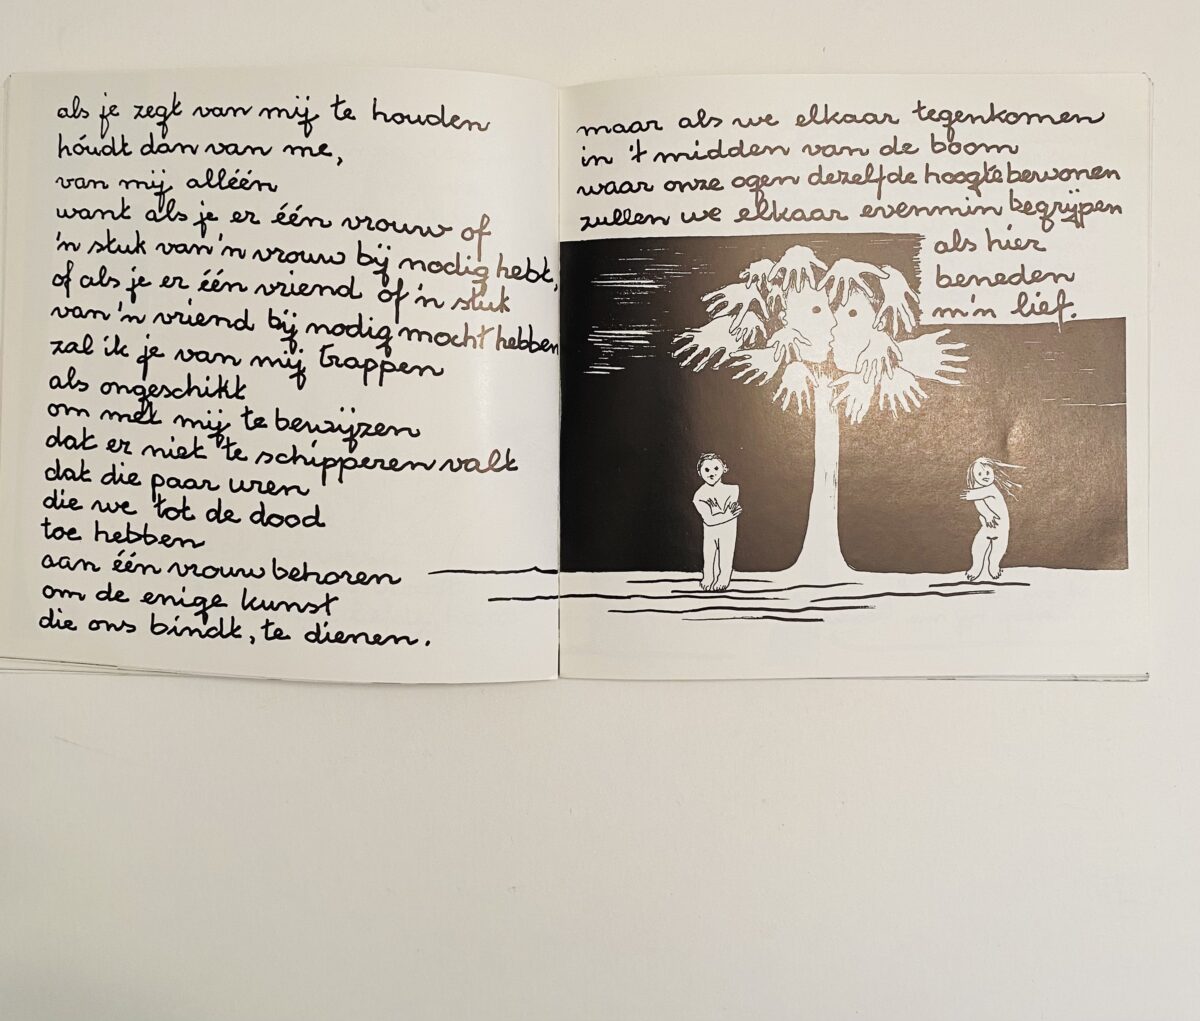 als je zegt van mij te houden
hóudt dan van me,
van mij alléén
want als je er één vrouw of
'n stuk van 'n vrouw bij nodig hebt,
of als je er één vriend of 'n stuk
van 'n vriend bij nodig mocht hebben
zal ik je van mij trappen
als ongeschikt
om met mij te bewijzen
dat er niet te schipperen valt
dat die paar uren
die we tot de dood
toe hebben
aan één vrouw behoren
om de enige kunst
die ons bindt, te dienen.
maar als we elkaar tegenkomen
in 't midden van de boom
waar onze ogen dezelfde hoogte bewonen
zullen we elkaar evenmin begrijpen
als hier
beneden
m'n lief.